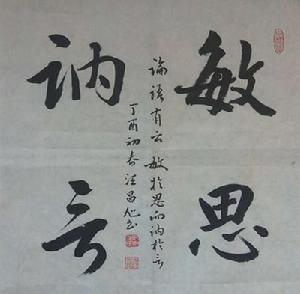 敏思
讷言
论语有云敏於思而讷於言
丁酉初春汪昌旭书